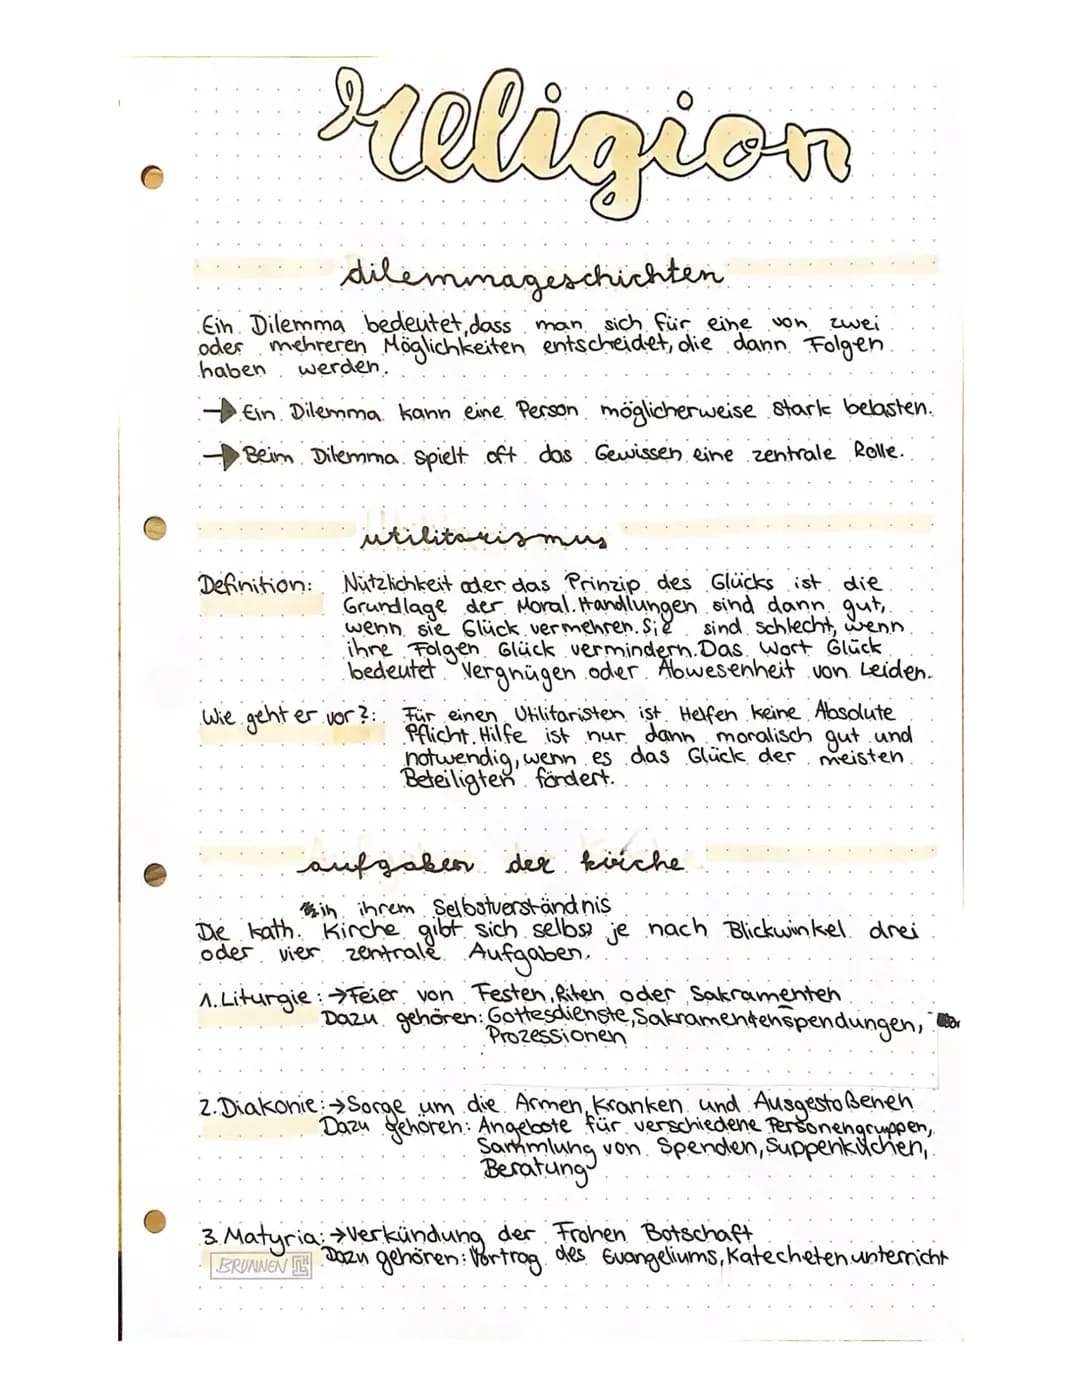 religion
dilemmageschichten
Ein Dilemma bedeutet, dass man sich für eine von zwei
oder mehreren Möglichkeiten entscheidet, die dann Folgen
haben werden.
→ Ein Dilemma kann eine Person möglicherweise stark belasten.
→ Beim Dilemma spielt oft das Gewissen eine zentrale Rolle.
utilitarismus
Definition: Nützlichkeit oder das Prinzip des Glücks ist die
Grundlage der Moral. Handlungen sind dann gut,
wenn sie Glück vermehren. Sie sind schlecht, wenn
ihre Folgen Glück vermindern. Das Wort Glück
bedeutet Vergnügen oder Abwesenheit von Leiden.
Wie geht er vor?: Für einen Utilitaristen ist Helfen keine Absolute
Pflicht. Hilfe ist nur dann moralisch gut und
notwendig, wenn es das Glück der meisten
Beteiligten fördert.
aufgaben der kirche
in ihrem Selbstverständnis
Die kath. Kirche gibt sich selbst je nach Blickwinkel drei
oder vier zentrale Aufgaben.
1. Liturgie: → Feier von Festen, Riten oder Sakramenten
Dazu gehören: Gottesdienste, Sakramentenspendungen,
Prozessionen
2. Diakonie: → Sorge um die Armen, Kranken und Ausgestoßenen
Dazu gehören: Angebote für verschiedene Personengruppen,
Sammlung von Spenden, Suppenküchen,
Beratung
3. Matyria: → Verkündung der Frohen Botschaft
Dazu gehören: Vortrag des Evangeliums, Katechetenunterricht
BRUNNEN